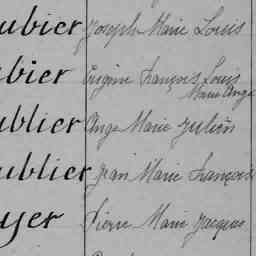 ubier Joseph Marie Louis
bier Eugène François Louis
Marie Ange
ublier Ange Marie Julien
ublier Jean Marie François
yer Pierre Marie Jacques